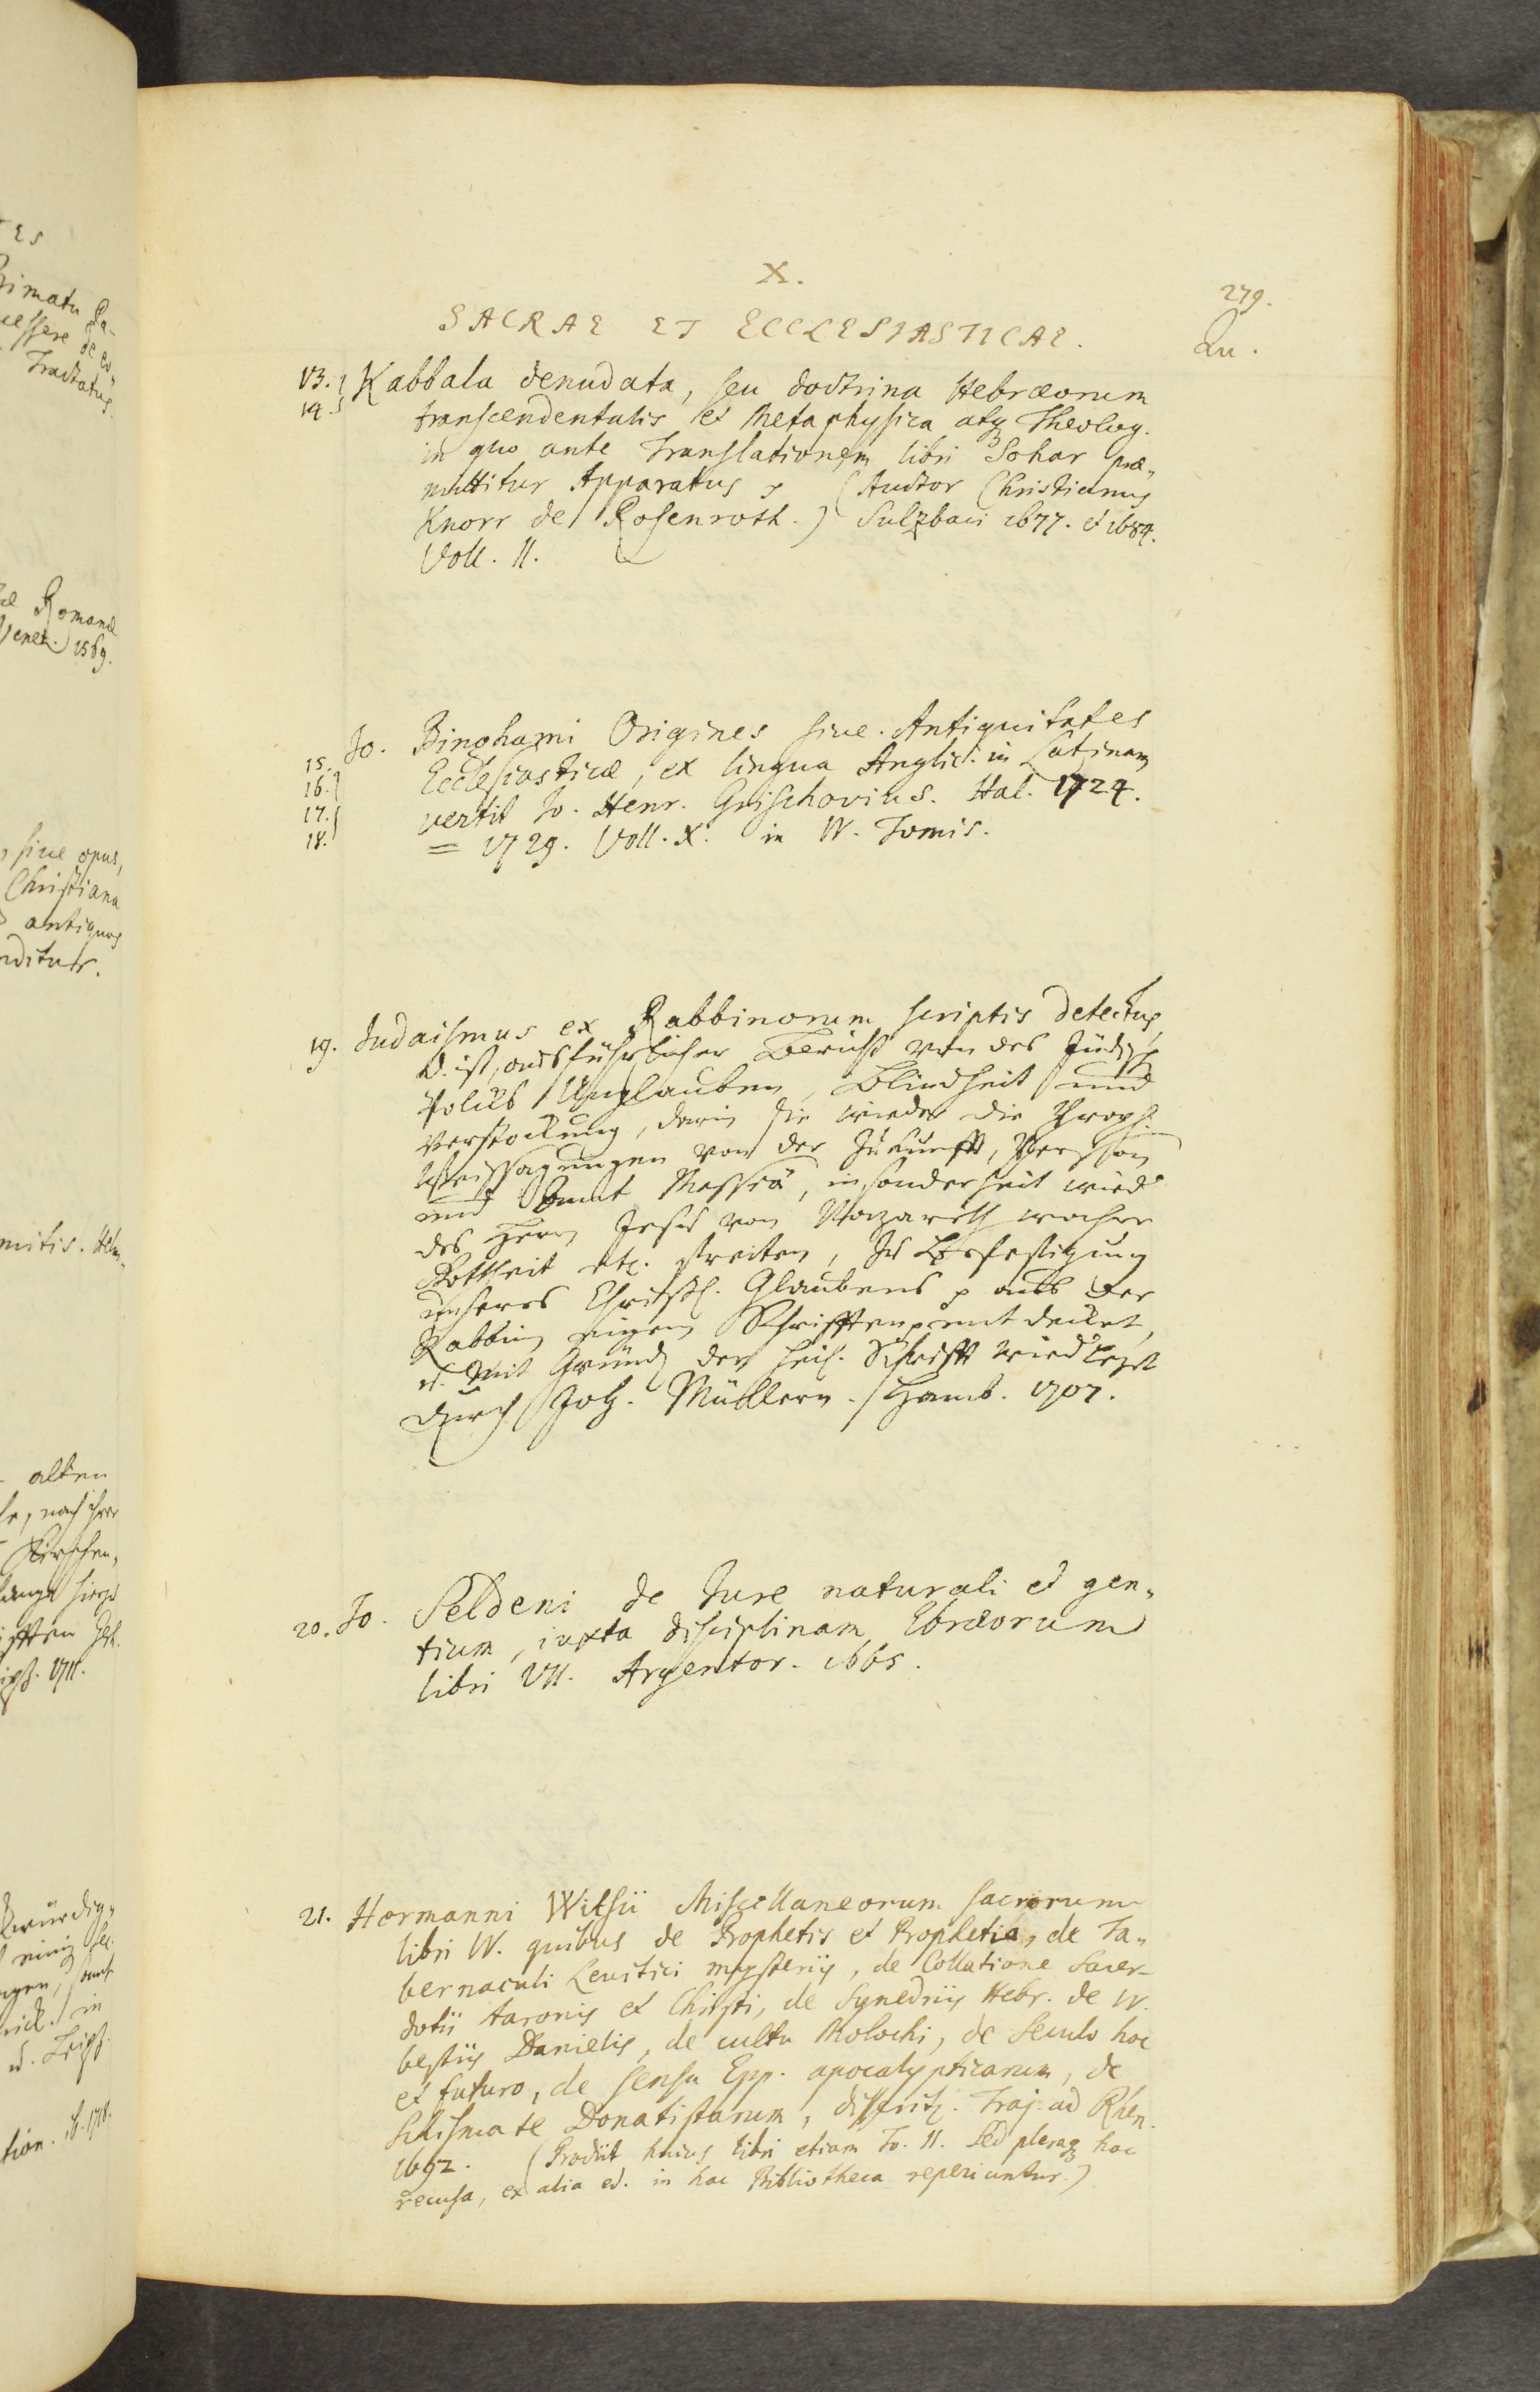 X.
279.
SACRAE ET ECCLESIASTICAE.
Qu.
13. Kabbala denudata, seu doctrina Hebræorum
14. transcendentalis et Metaphysica atq Theolog.
in quo ante Translationem libri Sohar præ„
mittitur Apparatus (Auctor Christianus
Knorr de Rosenroth.) Sulzbaci 1677. et 1684.
Voll. II.
Jo. Binghami Origines sive Antiquitates
15. Ecclesiasticæ, ex lingua Anglic. in Latinam
16.
17. vertit Jo. Henr. Grischovius. Hal. 1724.
18. = 1729. Voll. X. in IV. Tomis.
19. Judaismus ex Rabbinorum scriptis detectus,
d. ist, ausführlicher Bericht von des Jüdisch
Volcks Unglauben, Blindheit und
Verstockung, darin sie wieder die Proph.
Weissagungen von der Zukunfft, Person
und Ammt Messiä, insonderheit wied
des Herrn Jesu von Nazareth wahre
Gottheit etc. streiten, zu Befestigung
unseres Christl. Glaubens aus der
Rabbin eigen Schrifften entdecket,
u. mit Grund der heil. Schrifft wiedlegt
durch Joh. Müllern. Hamb. 1707.
20. Jo. Seldeni de Jure naturali et gen„
tium, iuxta disciplinam Ebræorum
libri VII. Argentor. 1665.
21. Hermanni Witsii Miscellaneorum Sacrorum
libri IV. quibus de Prophetis et Prophetia, de Ta„
bernaculi Levitici mysteriis, de Collatione Sacer-
dotii Aaronis et Christi, de Synedriis Hebr. de IV.
bestiis Danielis, de cultu Molochi, de Seculo hoc
et futuro, de sensu Epp. apocalypticarum, de
Schismate Donatistarum, disseritur. Traj. ad Rhen.
1692. (Prodiit huius libri etiam To. II. Sed pleraq hac
recusa, ex alia ed. in hac Bibliotheca reperiuntur.)